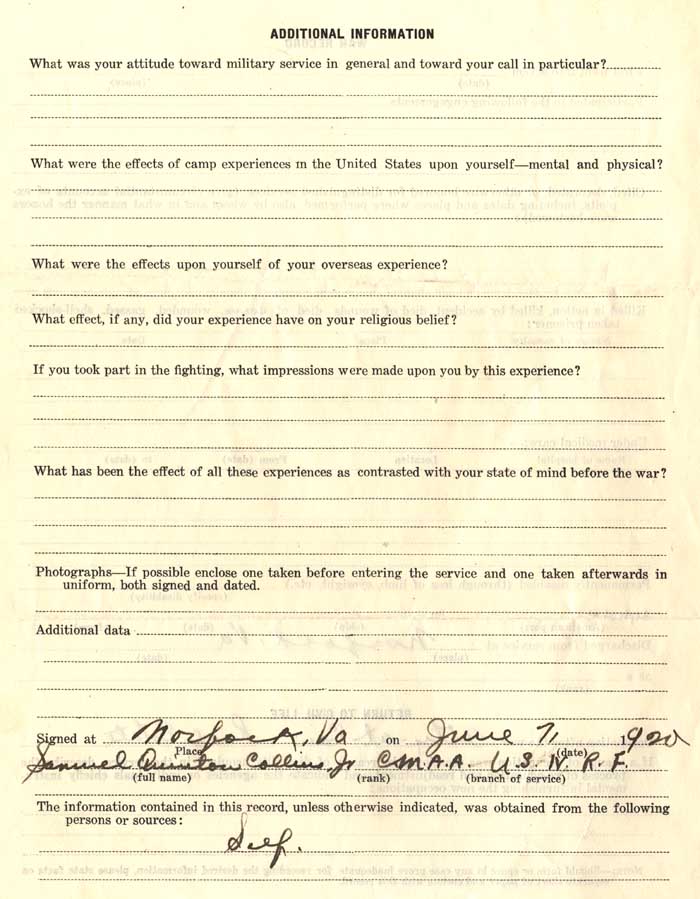 ADDITIONAL INFORMATION
What was your attitude toward military service in general and toward your call in particular?
What were the effects of camp experiences in the United States upon yourself—mental and physical?
What were the effects upon yourself of your overseas experience?
What effect, if any, did your experience have on your religious belief?
If you took part in the fighting, what impressions were made upon you by this experience?
What has been the effect of all these experiences as contrasted with your state of mind before the war?
Photographs—If possible enclose one taken before entering the service and one taken afterwards in
uniform, both signed and dated.
Additional data
Signed at Norfolk, Va on June 7, 1920
Place (date)
Samuel Quinton Collins, Jr C.M.A.A. U.S.N.R.F.
(full name) (rank) (branch of service)
The information contained in this record, unless otherwise indicated, was obtained from the following
persons or sources:
Self.